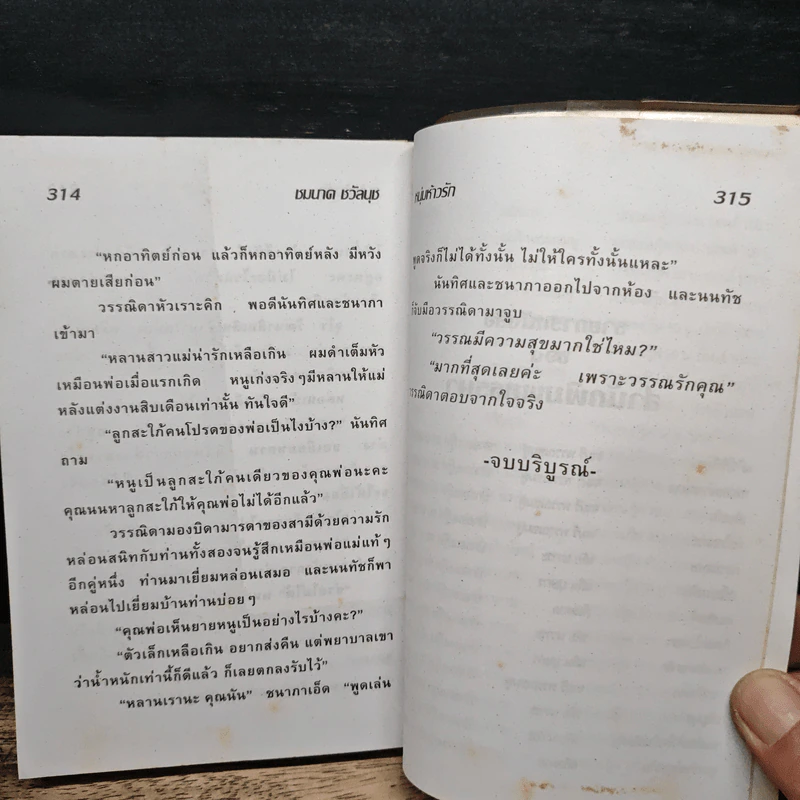 314
ชมนาด ชวัลนุช
“หกอาทิตย์ก่อน แล้วก็หกอาทิตย์หลัง มีหวัง
ผมตายเสียก่อน”
วรรณิดาหัวเราะคิก พอดีนันทิศและชนาภา
เข้ามา
“หลานสาวแม่น่ารักเหลือเกิน ผมดำเต็มหัว
เหมือนพ่อเมื่อแรกเกิด หนูเก่งจริงๆมีหลานให้แม่
หลังแต่งงานสิบเดือนเท่านั้น ทันใจดี”
“ลูกสะใภ้คนโปรดของพ่อเป็นไงบ้าง?” นันทิศ
ถาม
“หนูเป็นลูกสะใภ้คนเดียวของคุณพ่อนะคะ
คุณนนหาลูกสะใภ้ให้คุณพ่อไม่ได้อีกแล้ว”
วรรณิดามองบิดามารดาของสามีด้วยความรัก
หล่อนสนิทกับท่านทั้งสองจนรู้สึกเหมือนพ่อแม่แท้ๆ
อีกคู่หนึ่ง ท่านมาเยี่ยมหล่อนเสมอ และนนทัชก็พา
หล่อนไปเยี่ยมบ้านท่านบ่อยๆ
“คุณพ่อเห็นยายหนูเป็นอย่างไรบ้างคะ?”
“ตัวเล็กเหลือเกิน อยากส่งคืน แต่พยาบาลเขา
ว่าน้ำหนักเท่านี้ก็ดีแล้ว ก็เลยตกลงรับไว้”
“หลานเรานะ คุณนัน” ชนาภาเอ็ด “พูดเล่น
หนุ่มห้าวรัก
315
พูดจริงก็ไม่ได้ทั้งนั้น ไม่ให้ใครทั้งนั้นแหละ”
นันทิศและชนาภาออกไปจากห้อง และนนทัช
ก็จับมือวรรณิดามาจูบ
“วรรณมีความสุขมากใช่ไหม?”
“มากที่สุดเลยค่ะ เพราะวรรณรักคุณ”
วรรณิดาตอบจากใจจริง
-จบบริบูรณ์-